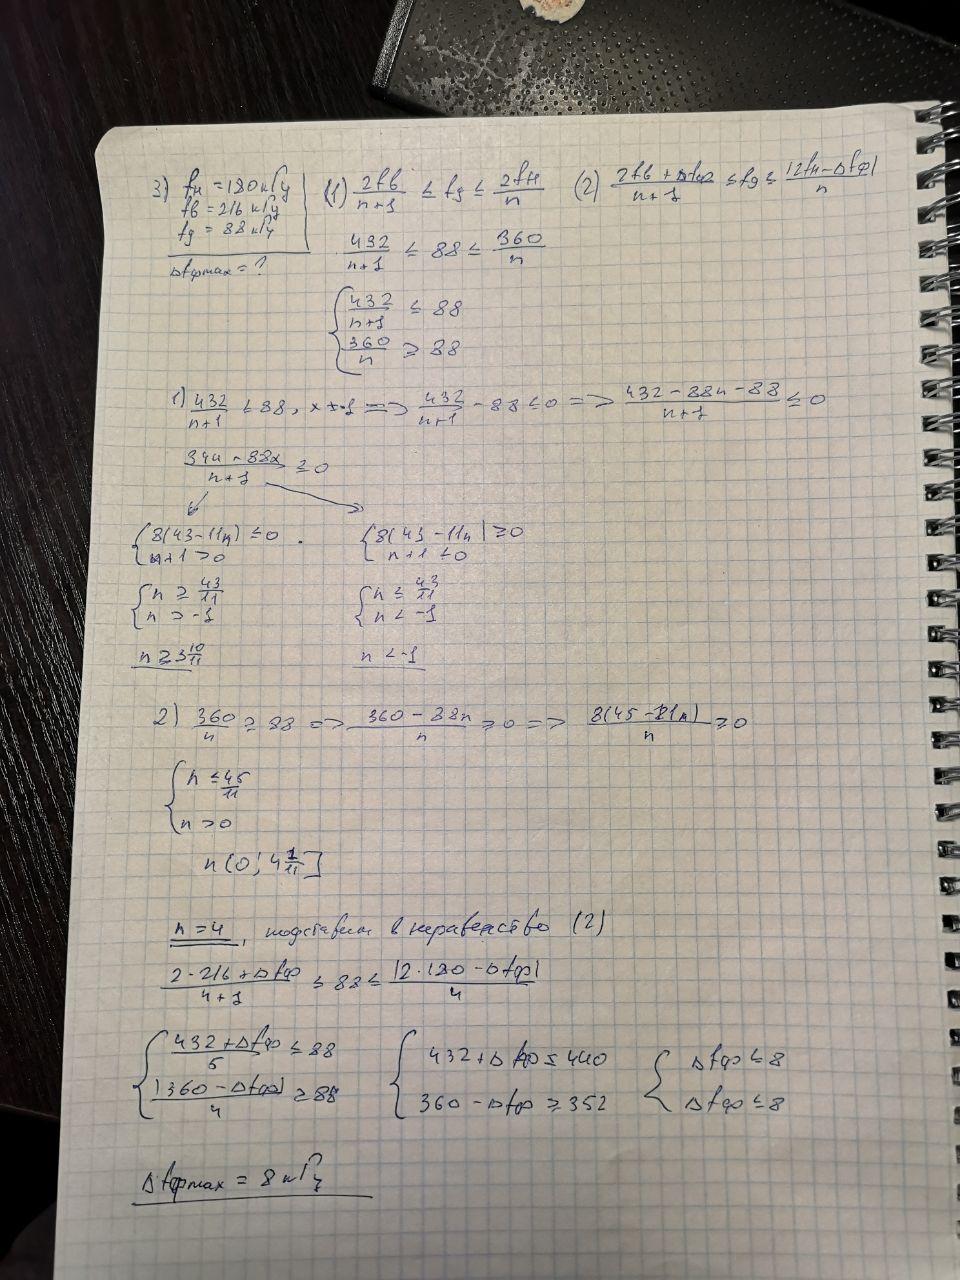 3) fн = 180 кГц
fв = 216 кГц
fg = 88 кГц
Δfфmax = ?
(1) 2fв/(n+1) ≤ fg ≤ 2fн/n
(2) (2fв + Δfф)/(n+1) ≤ fg ≤ |2fн - Δfф|/n
432/(n+1) ≤ 88 ≤ 360/n
{ 432/(n+1) ≤ 88
360/n ≥ 88
1) 432/(n+1) ≤ 88, x ≠ -1 => 432/(n+1) - 88 ≤ 0 => (432 - 88n - 88)/(n+1) ≤ 0
(344 - 88x)/(n+1) ≥ 0
{ 8(43 - 11n) ≤ 0
n+1 > 0
{ 8(43 - 11n) ≥ 0
n+1 < 0
{ n ≥ 43/11
n > -1
{ n ≤ 43/11
n < -1
n ≥ 3 10/11
n < -1
2) 360/n ≥ 88 => (360 - 88n)/n ≥ 0 => 8(45 - 11n)/n ≥ 0
{ n ≤ 45/11
n > 0
n (0; 4 1/11]
n = 4, подставим в неравенство (2)
(2·216 + Δfф)/(4+1) ≤ 88 ≤ |2·180 - Δfф|/4
{ (432 + Δfф)/5 ≤ 88
|360 - Δfф|/4 ≥ 88
{ 432 + Δfф ≤ 440
360 - Δfф ≥ 352
{ Δfф ≤ 8
Δfф ≤ 8
Δfфmax = 8 кГц